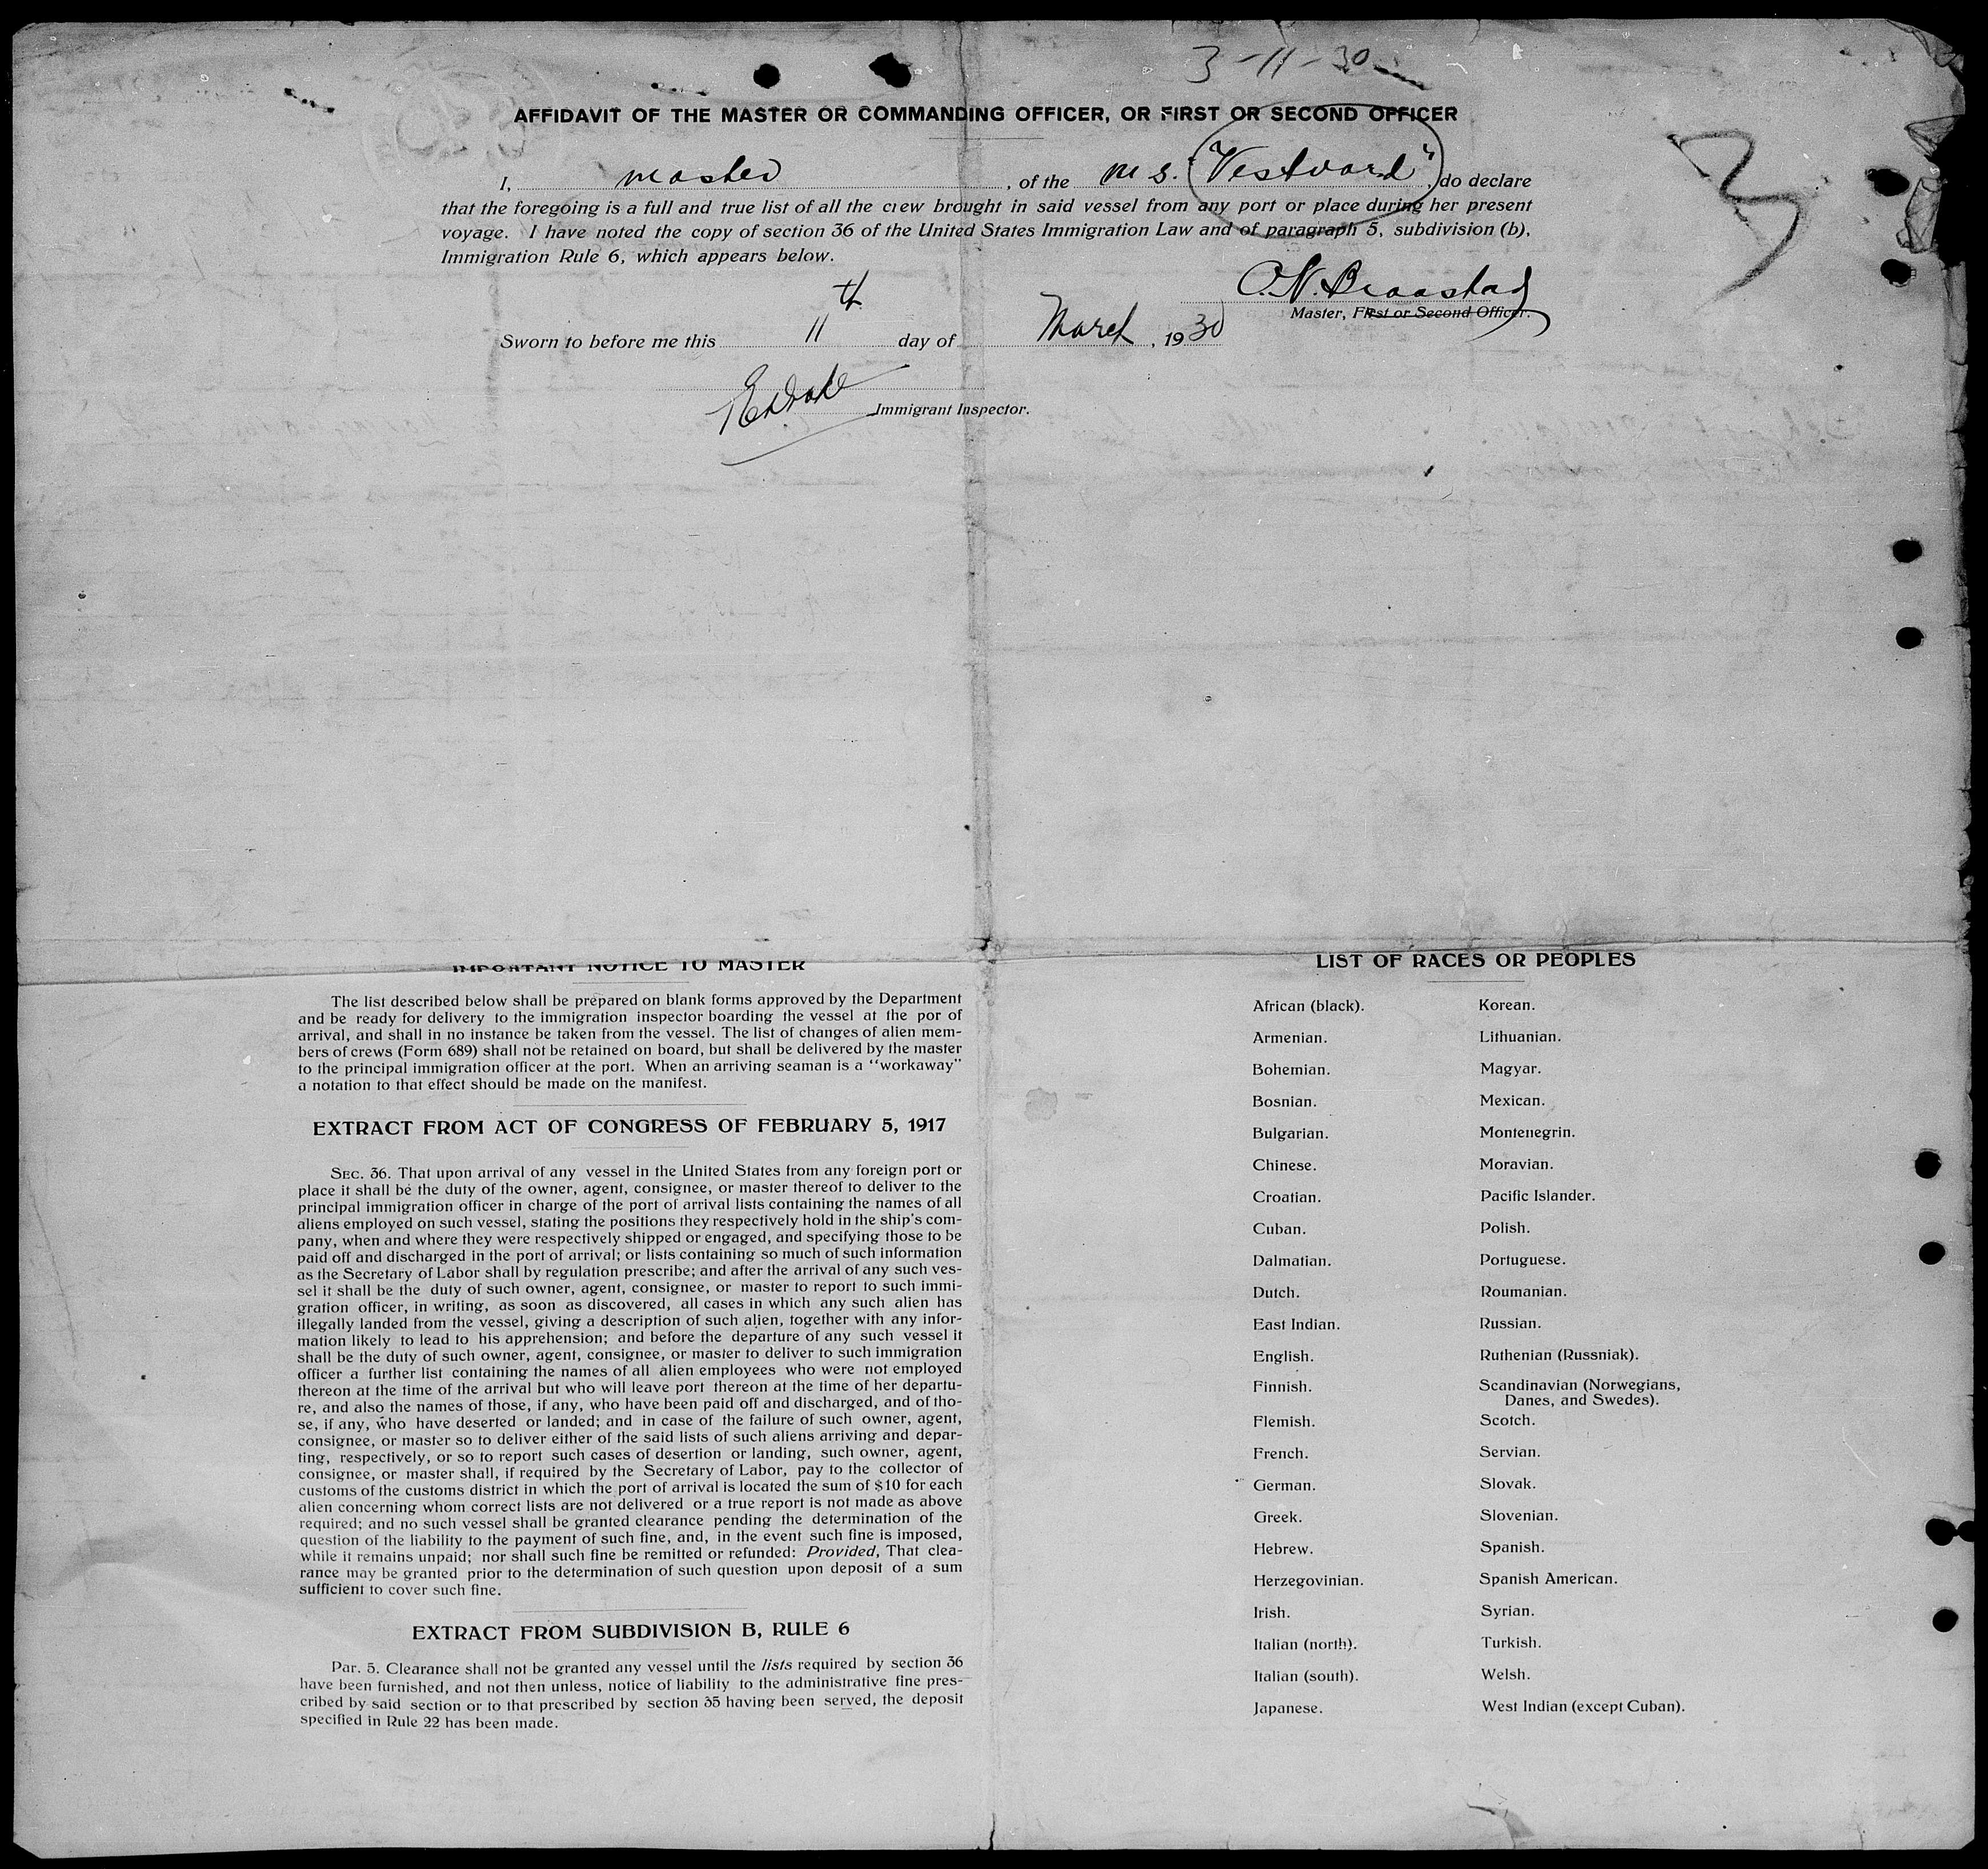 3-11-30
AFFIDAVIT OF THE MASTER OR COMMANDING OFFICER, OR FIRST OR SECOND OFFICER
I, master, of the M.S. "Vestvard", do declare
that the foregoing is a full and true list of all the crew brought in said vessel from any port or place during her present
voyage. I have noted the copy of section 36 of the United States Immigration Law and of paragraph 5, subdivision (b),
Immigration Rule 6, which appears below.
3
Master, First or Second Officer.
Sworn to before me this 11th day of March, 1930
Immigrant Inspector.
IMPORTANT NOTICE TO MASTER
The list described below shall be prepared on blank forms approved by the Department
and be ready for delivery to the immigration inspector boarding the vessel at the por of
arrival, and shall in no instance be taken from the vessel. The list of changes of alien mem-
bers of crews (Form 689) shall not be retained on board, but shall be delivered by the master
to the principal immigration officer at the port. When an arriving seaman is a "workaway"
a notation to that effect should be made on the manifest.
EXTRACT FROM ACT OF CONGRESS OF FEBRUARY 5, 1917
SEC. 36. That upon arrival of any vessel in the United States from any foreign port or
place it shall be the duty of the owner, agent, consignee, or master thereof to deliver to the
principal immigration officer in charge of the port of arrival lists containing the names of all
aliens employed on such vessel, stating the positions they respectively hold in the ship's com-
pany, when and where they were respectively shipped or engaged, and specifying those to be
paid off and discharged in the port of arrival; or lists containing so much of such information
as the Secretary of Labor shall by regulation prescribe; and after the arrival of any such ves-
sel it shall be the duty of such owner, agent, consignee, or master to report to such immi-
gration officer, in writing, as soon as discovered, all cases in which any such alien has
illegally landed from the vessel, giving a description of such alien, together with any infor-
mation likely to lead to his apprehension; and before the departure of any such vessel it
shall be the duty of such owner, agent, consignee, or master to deliver to such immigration
officer a further list containing the names of all alien employees who were not employed
thereon at the time of the arrival but who will leave port thereon at the time of her departu-
re, and also the names of those, if any, who have been paid off and discharged, and of tho-
se, if any, who have deserted or landed; and in case of the failure of such owner, agent,
consignee, or master so to deliver either of the said lists of such aliens arriving and depar-
ting, respectively, or so to report such cases of desertion or landing, such owner, agent,
consignee, or master shall, if required by the Secretary of Labor, pay to the collector of
customs of the customs district in which the port of arrival is located the sum of $10 for each
alien concerning whom correct lists are not delivered or a true report is not made as above
required; and no such vessel shall be granted clearance pending the determination of the
question of the liability to the payment of such fine, and, in the event such fine is imposed,
while it remains unpaid; nor shall such fine be remitted or refunded: Provided, That clea-
rance may be granted prior to the determination of such question upon deposit of a sum
sufficient to cover such fine.
EXTRACT FROM SUBDIVISION B, RULE 6
Par. 5. Clearance shall not be granted any vessel until the lists required by section 36
have been furnished, and not then unless, notice of liability to the administrative fine pres-
cribed by said section or to that prescribed by section 35 having been served, the deposit
specified in Rule 22 has been made.
LIST OF RACES OR PEOPLES
African (black).
Armenian.
Bohemian.
Bosnian.
Bulgarian.
Chinese.
Croatian.
Cuban.
Dalmatian.
Dutch.
East Indian.
English.
Finnish.
Flemish.
French.
German.
Greek.
Hebrew.
Herzegovinian.
Irish.
Italian (north).
Italian (south).
Japanese.
Korean.
Lithuanian.
Magyar.
Mexican.
Montenegrin.
Moravian.
Pacific Islander.
Polish.
Portuguese.
Roumanian.
Russian.
Ruthenian (Russniak).
Scandinavian (Norwegians,
Danes, and Swedes).
Scotch.
Servian.
Slovak.
Slovenian.
Spanish.
Spanish American.
Syrian.
Turkish.
Welsh.
West Indian (except Cuban).